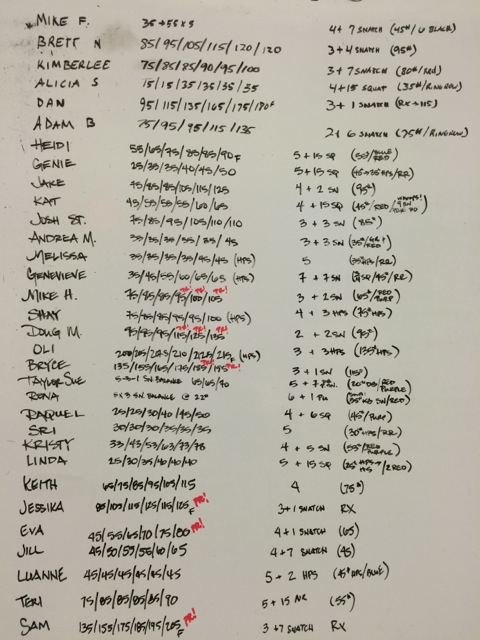 MIKE F. 35→55 x 5 4+ 7 SNATCH (45#/U BLACK)
BRETT N 85/95/105/115/120/120 3+4 SNATCH (95#)
KIMBERLEE 75/85/85/90/95/100 3+7 SNATCH (80#/RED)
ALICIA S 15/15/35/35/35/35 4+15 SQUAT (35#/RINGROW)
DAN 95/115/135/165/175/180F 3+1 SNATCH (RX→115)
ADAM B 75/95/95/115/135 2+ 6 SNATCH (75#/RINGROW)
HEIDI 55/65/75/85/85/90F 5+15 SQ (55#/BLUE RED)
GENIE 25/35/35/40/45/50 5+15 SQ (45→35 HPS/RR)
JAKE 75/85/85/105/115/125 4+2 SN (95#)
KAT 45/55/55/55/60/65 4+15 SQ (45#/RED/
JOSH ST. 75/85/95/105/110/110 3+3 SN (85#)
ANDREA M. 35/35/35/35/35/45 3+3 SN (35#/
MELISSA 35/35/35/35/45/45 (HPS) 5 (35#HPS/RR)
GENEVIEVE 35/45/55/60/65/65 (HPS) 7+7 SN (45#/RR)
MIKE H. 75/85/85/95/100/105 PR! PR! PR! 3+2SN (65#/RED PURP)
SHAY 75/85/85/95/95/100 (HPS) 4+3 HPS (75# HPS)
DOUG M. 95/95/95/115/125/135 PR! PR! PR! 2+2SN (95#)
OLI 200/205/205/210/215/215F (HPS) 3+3HPS (135#HPS)
BRYCE 135/155/165/175/185/195 PR! PR! 3+1SN (115#)
TAYLOR SUE 5-5-1 SN BALANCE 65/65/70 5+7 SN. (20#DB/RED PURPLE)
RONA 5x3 SN BALANCE @ 22# 6+1 PU (35# SN/RED)
RAQUEL 25/25/30/40/45/50 4+6SQ (45#/PURP)
SRI 30/30/30/35/35/35 5 (30#HPS/RR)
KRISTY 33/43/53/63/73/78 4+5 SN (55#/RED PURPLE)
LINDA 25/30/35/40/40/40 5+15 SQ (25#HPS→ /2RED)
KEITH 65/75/85/95/105/115 4 (75#)
JESSIKA 95/105/115/125/115/125F PR! 3+1SNATCH RX
EVA 45/55/65/70/75/80 PR! 4+1 SNATCH (65)
JILL 45/50/55/55/60/65 4+7 SNATCH (45)
LUANNE 45/45/45/45/45/45 5+2 HPS (45# HPS/BLUE)
TERI 75/85/85/85/85/90 5+15 (55#)
SAM 135/155/175/185/195/205F PR! 3+7 SNATCH RX